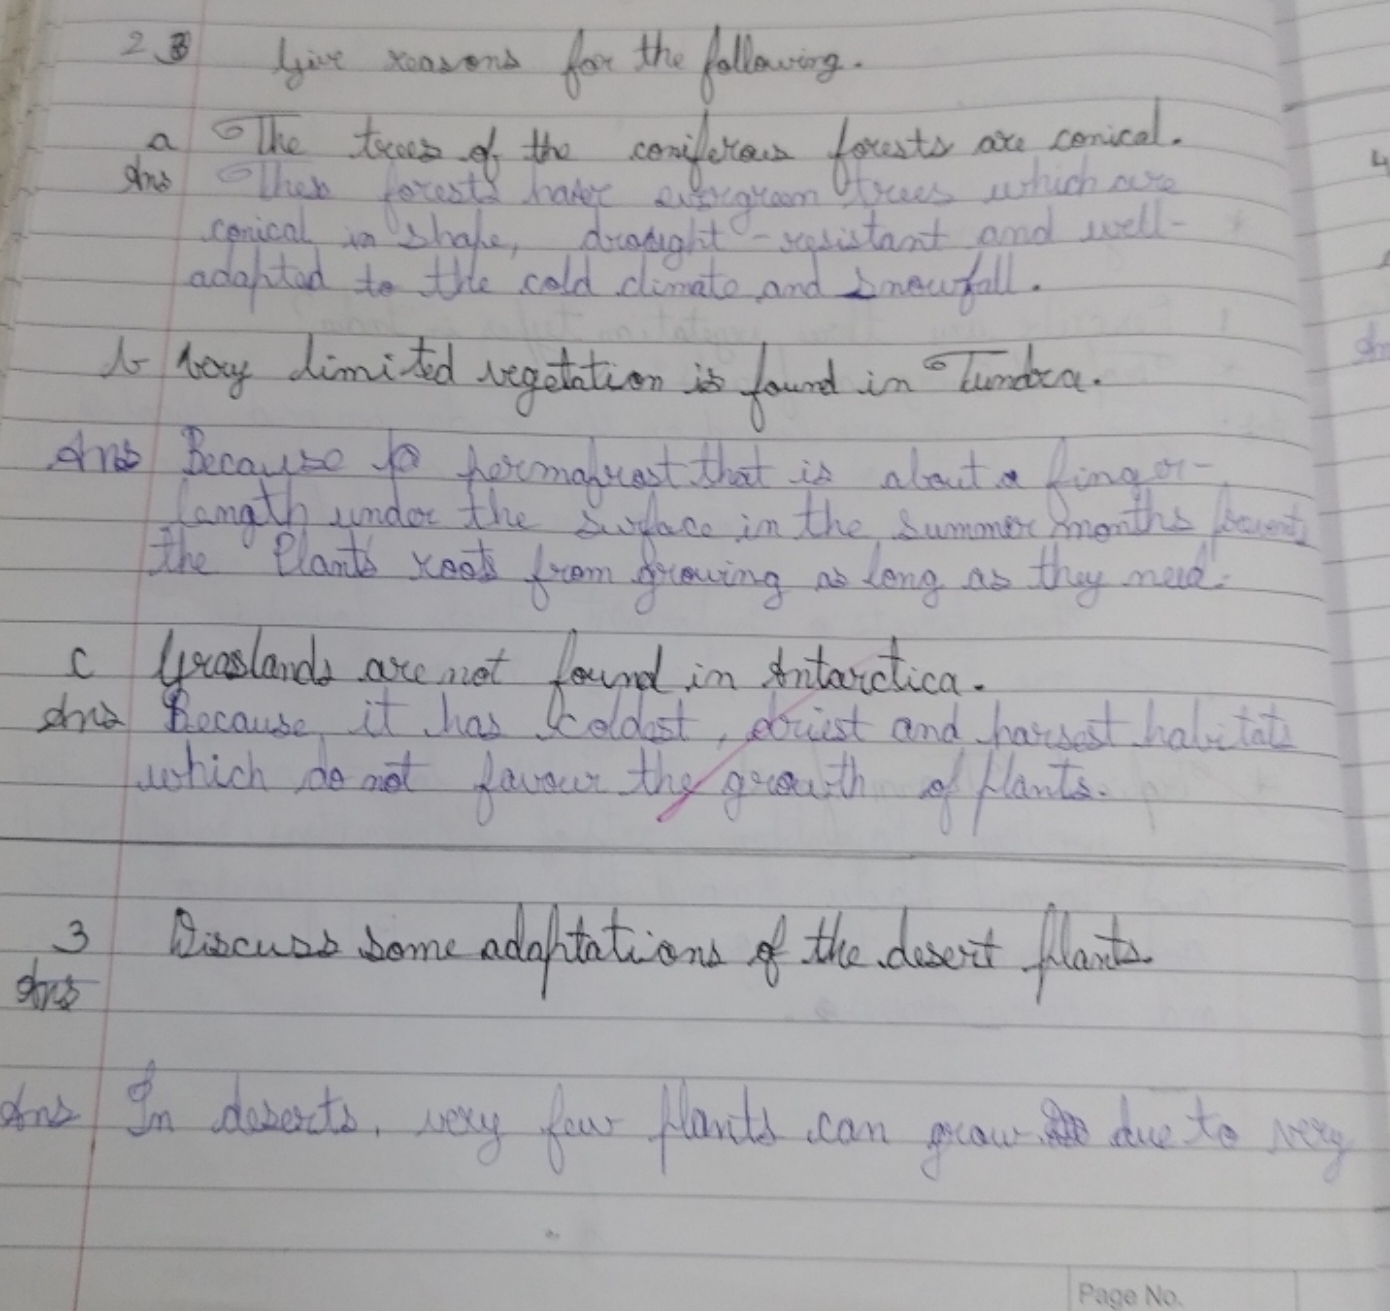 2 Give reasons for the following.
a The trees of the coniferous forests are conical.
Ans These forests have evergreen trees which are
conical in shape, drought-resistant and well-
adapted to the cold climate and snowfall.
b Very limited vegetation is found in Tundra.
Ans Because permafrost that is about a finger-
length under the surface in the summer months prevents
the Plants roots from growing as long as they need.
c Graslands are not found in Antarctica.
Ans Because it has coldest, driest and harsest habitats
which do not favour the growth of plants.
3 Discuss some adaptations of the desert plants.
Ans
Ans In deserts, very few plants can grow due to very
Page No.
4